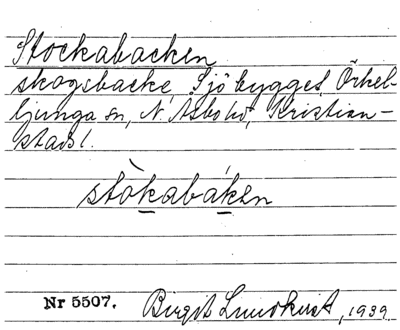 Stockabacken
skogsbacke, Sjöbygget, Örkel-
ljunga sn, N. Åsbo hd, Kristian-
stads l.
stòkabáken
Nr 5507. Birgit Lundkvist, 1939.